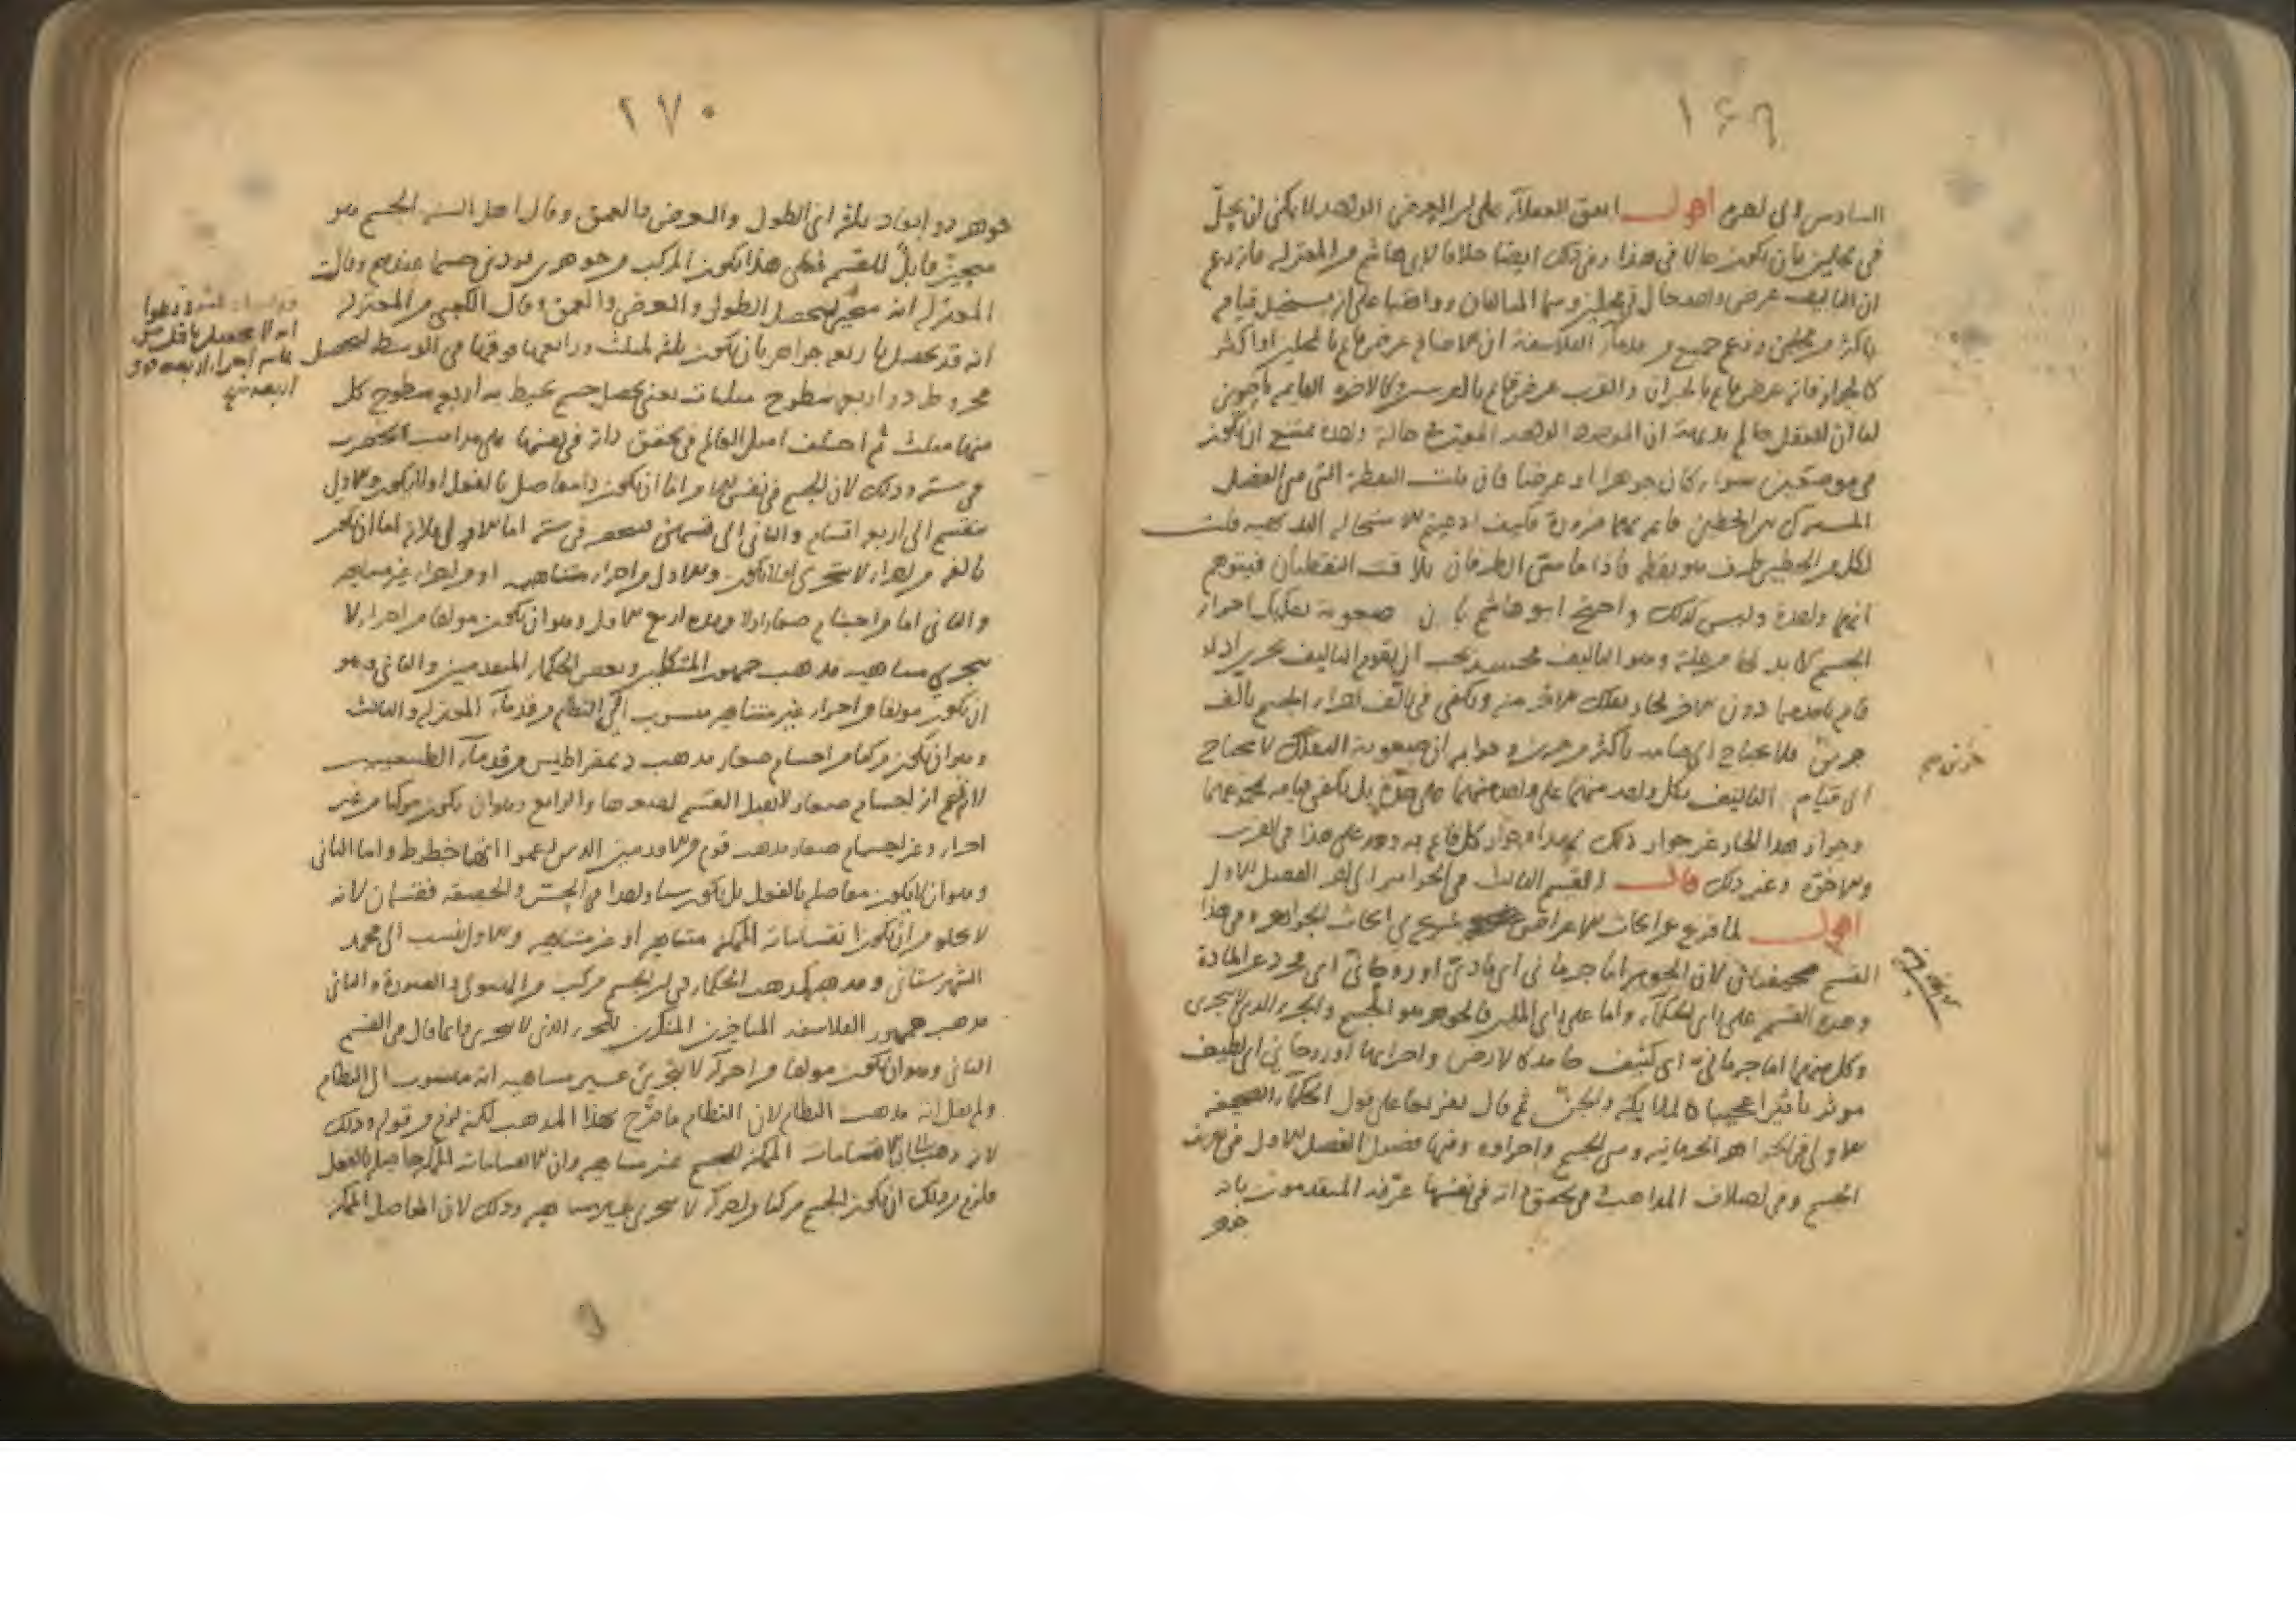 ١٦٩
السادس الى اخره اقول اتفق العقلاء على ان العرض الواحد لا يمكن ان يحل
في محلين بان يكون حالا في هذا وفي ذلك ايضا خلافا لابي هاشم من المعتزلة فانه زعم
ان التاليف عرض واحد حال في محلين وهما المتالفان ووافقنا على انه يستحيل قيامه
باكثر من محلين وزعم جميع من قدماء الفلاسفة ان الاضافة عرض قائم بالمحلين او اكثر
كالجوار فانه عرض قائم بالجارين والقرب عرض قائم بالقريبين وكالاخوة القائمة بالاخوين
لنا ان العقل حاكم بديهة ان الموجود الواحد المعين في حالة واحدة يمتنع ان يكون
في موضعين سواء كان جوهرا او عرضا فان قلت النقطة التي هي الفصل
المشترك بين الخطين قائمة بهما ضرورة فكيف ادعيتم الاستحالة قلت
لكل من الخطين طرف هو نقطة فاذا تماس الطرفان تلاقت النقطتان فيتوهم
انهما واحدة وليس كذلك واحتج ابو هاشم بان صعوبة تفكيك اجزاء
الجسم لا بد لها من علة وهو التاليف فيجب ان يقوم التاليف بجزئين اذ لو
قام باحدهما دون الاخر لجاز تفكك الاخر منه ويكفي في تالف اجزاء الجسم تالف
جزئين فلا يحتاج الى قيامه باكثر من جزئين وجوابه ان صعوبة التفكك لا تحتاج
الى قيام التاليف بكل واحد منهما على واحد منهما على حدة بل يكفي قيامه بمجموعهما
وجواز هذا الحال غير جواز ذلك
والاخوة وغير ذلك قال القسم الثالث في الجواهر الى اخر الفصل الاول
اقول لما فرغ من ابحاث الاعراض شرع في ابحاث الجواهر وفي هذا
القسم لان الجوهر اما جرماني اي مادي او روحاني اي مجرد عن المادة
وهذه القسمة على راي الحكماء واما على راي المليين فالجوهر هو الجسم والجزء الذي لا يتجزى
وكل منهما اما جرماني اي كثيف جامد كالارض واجزائها او روحاني اي لطيف
موثر تأثيرا عجيبا كالملايكة والجن ثم قال تفريعا على قول الحكماء الصحيفة
الاولى في الجواهر الجرمانية وهي الجسم واجزاوه وفيها فصول الفصل الاول في تعريف
الجسم وفي اختلاف المذاهب في تحقق ذاته في نفسها عرفه المتقدمون بانه
جوهر
٢٧٠
جوهر ذو ابعاد ثلثة اي الطول والعرض والعمق وقال اهل السنة الجسم هو
متحيز قابل للقسمة فعلى هذا يكون المركب من جوهرين فردين جسما عندهم وقالت
المعتزلة انه متحيز يحصل الطول والعرض والعمق وقال الكعبي من المعتزلة
انه قد يحصل باربعة جواهر بان يكون ثلثة كمثلث ورابعها فوقها في الوسط ليحصل
مخروط ذو اربع سطوح مثلثات يعني يحصل جسم يحيط به اربع سطوح كل
منها مثلث ثم اختلف اهل العالم في تحقق ذاته في نفسها على مذاهب انحصرت
في ستة وذلك لان الجسم في نفسه اما ان يكون ذا مفاصل بالفعل او لا يكون والاول
منقسم الى اربعة اقسام والثاني الى قسمين فينحصر في ستة اما الاول فلانه اما ان يكون
تالفه من اجزاء لا تتجزى او لا يكون والاول من اجزاء متناهية او من اجزاء غير متناهية
والثاني اما من اجسام صغار اولا وهذه اربع الاول وهو ان يكون مولفا من اجزاء لا
تتجزى متناهية مذهب جمهور المتكلمين وبعض الحكماء المتقدمين والثاني وهو
ان يكون مولفا من اجزاء غير متناهية منسوب الى النظام من قدماء المعتزلة والثالث
وهو ان يكون مركبا من اجسام صغار مذهب ديمقراطيس من قدماء الطبيعيين
لانه زعم انه اجسام صغار لا تقبل القسمة والرابع وهو ان يكون مركبا من غير
اجزاء وغير اجسام صغار مذهب قوم من الاقدمين الذين زعموا انها خطوط واما الثاني
وهو ان لا يكون مفاصله بالفعل بل يكون شيئا واحدا في الحس والحقيقة فقسمان لانه
لا يخلو من ان يكون انقساماته الممكنة متناهية او غير متناهية والاول ينسب الى محمد
الشهرستاني ومذهبه كمذهب الحكماء في ان الجسم مركب من الهيولى والصورة والثاني
مذهب جمهور الفلاسفة المتاخرين المنكرين للجزء الذي لا يتجزى وانما قال في القسم
الثاني وهو ان يكون مولفا من اجزاء لا تتجزى غير متناهية انه منسوب الى النظام
ولم يقل انه مذهب النظام لان النظام ما صرح بهذا المذهب لكنه لزم من قوله وذلك
لانه ذهب الى ان الانقسامات الممكنة للجسم غير متناهية وان الانقسامات الممكنة حاصلة بالفعل
فلزم من ذلك ان يكون الجسم مركبا من اجزاء لا تتجزى غير متناهية وذلك لان المفاصل الممكنة